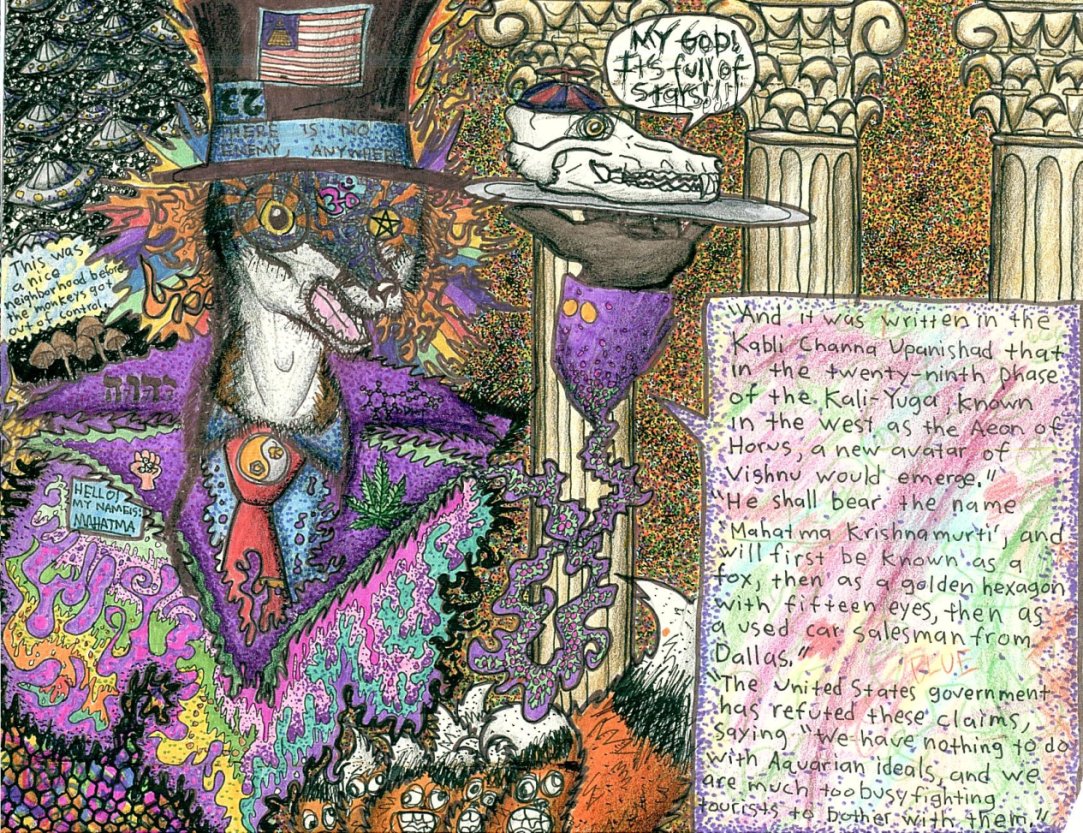 MY GOD!
It's full of
stars!!!
23
THERE IS NO
ENEMY, ANYWHERE
This was
a nice
neighborhood before
the monkeys got
out of control.
יהוה
HELLO!
MY NAME IS:
MAHATMA
"And it was written in the
Kabli Channa Upanishad that
in the twenty-ninth phase
of the Kali-Yuga, known
in the west as the Aeon of
Horus, a new avatar of
Vishnu would emerge."
"He shall bear the name
'Mahatma Krishnamurti', and
will first be known as a
fox, then as a golden hexagon
with fifteen eyes, then as
a used car salesman from
Dallas."
TRUE
"The United States government
has refuted these claims,
saying "We have nothing to do
with Aquarian ideals, and we
are much too busy fighting
tourists to bother with them."